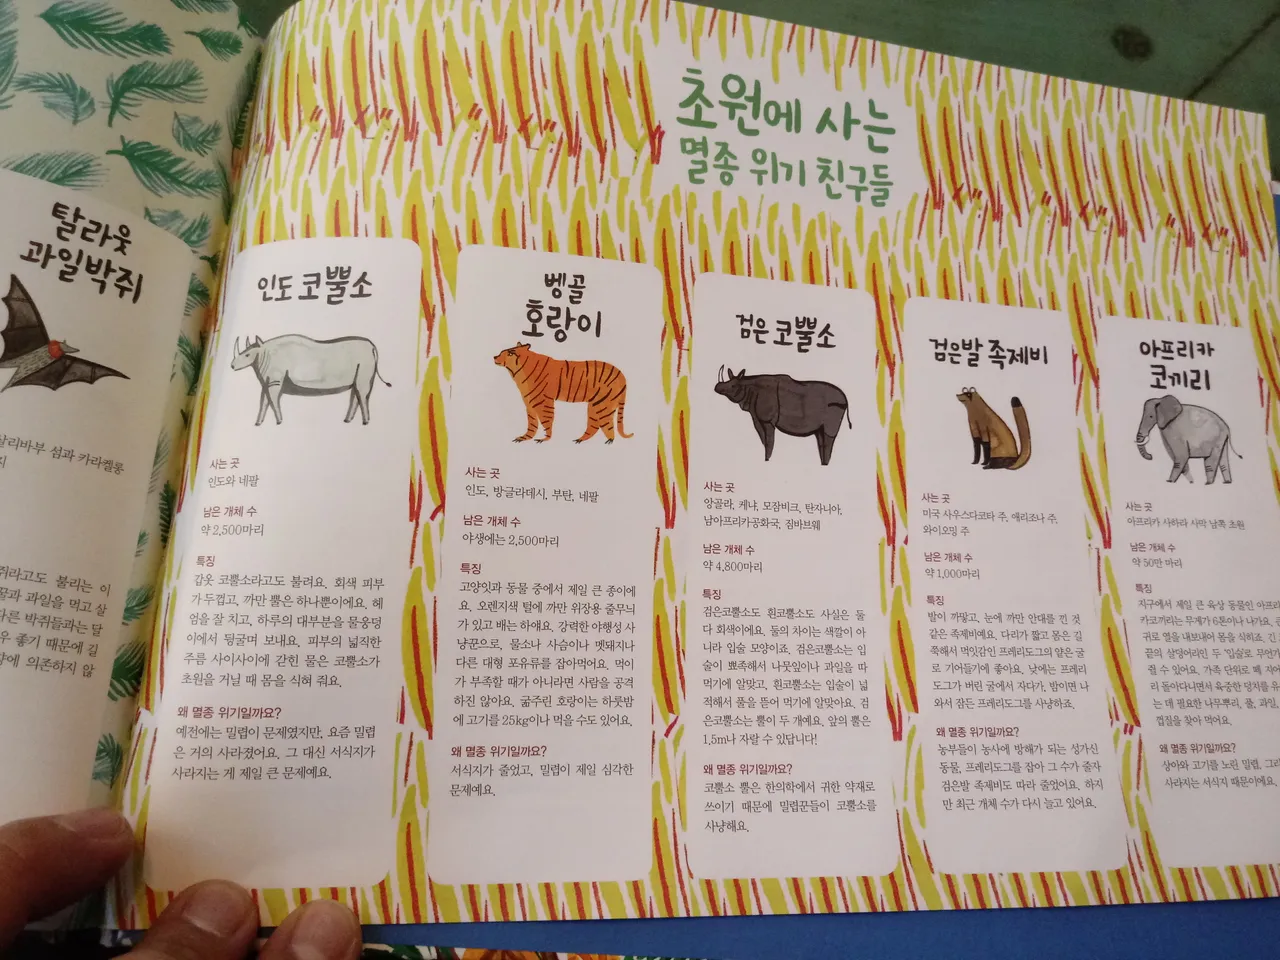 탈라웃
과일박쥐
섬과 카라켈롱
쥐라고도 불리는 이
꿀과 과일을 먹고 살
다른 박쥐들과는 달
우 좋기 때문에 길
향에 의존하지 않
초원에 사는
멸종 위기 친구들
인도 코뿔소
사는 곳
인도와 네팔
남은 개체 수
약 2,500마리
특징
갑옷 코뿔소라고도 불려요. 회색 피부
가 두껍고, 까만 뿔은 하나뿐이에요. 헤
엄을 잘 치고, 하루의 대부분을 물웅덩
이에서 뒹굴며 보내요. 피부의 넓직한
주름 사이사이에 갇힌 물은 코뿔소가
초원을 거닐 때 몸을 식혀 줘요.
왜 멸종 위기일까요?
예전에는 밀렵이 문제였지만, 요즘 밀렵
은 거의 사라졌어요. 그 대신 서식지가
사라지는 게 제일 큰 문제예요.
벵골
호랑이
사는 곳
인도, 방글라데시, 부탄, 네팔
남은 개체 수
야생에는 2,500마리
특징
고양잇과 동물 중에서 제일 큰 종이에
요. 오렌지색 털에 까만 위장용 줄무늬
가 있고 배는 하얘요. 강력한 야행성 사
냥꾼으로, 물소나 사슴이나 멧돼지나
다른 대형 포유류를 잡아먹어요. 먹이
가 부족할 때가 아니라면 사람을 공격
하진 않아요. 굶주린 호랑이는 하룻밤
에 고기를 25kg이나 먹을 수도 있어요.
왜 멸종 위기일까요?
서식지가 줄었고, 밀렵이 제일 심각한
문제예요.
검은 코뿔소
사는 곳
앙골라, 케냐, 모잠비크, 탄자니아,
남아프리카공화국, 짐바브웨
남은 개체 수
약 4,800마리
특징
검은코뿔소도 흰코뿔소도 사실은 둘
다 회색이에요. 둘의 차이는 색깔이 아
니라 입술 모양이죠. 검은코뿔소는 입
술이 뾰족해서 나뭇잎이나 과일을 따
먹기에 알맞고, 흰코뿔소는 입술이 넓
적해서 풀을 뜯어 먹기에 알맞아요. 검
은코뿔소는 뿔이 두 개예요. 앞의 뿔은
1.5m나 자랄 수 있답니다!
왜 멸종 위기일까요?
코뿔소 뿔은 한의학에서 귀한 약재로
쓰이기 때문에 밀렵꾼들이 코뿔소를
사냥해요.
검은발 족제비
사는 곳
미국 사우스다코타 주, 애리조나 주,
와이오밍 주
남은 개체 수
약 1,000마리
특징
발이 까맣고, 눈에 까만 안대를 낀 것
같은 족제비예요. 다리가 짧고 몸은 길
쭉해서 먹잇감인 프레리도그의 얕은 굴
로 기어들기에 좋아요. 낮에는 프레리
도그가 버린 굴에서 자다가, 밤이면 나
와서 잠든 프레리도그를 사냥하죠.
왜 멸종 위기일까요?
농부들이 농사에 방해가 되는 성가신
동물, 프레리도그를 잡아 그 수가 줄자
검은발 족제비도 따라 줄었어요. 하지
만 최근 개체 수가 다시 늘고 있어요.
아프리카
코끼리
사는 곳
아프리카 사하라 사막 남쪽 초원
남은 개체 수
약 50만 마리
특징
지구에서 제일 큰 육상 동물인 아프리
카코끼리는 무게가 6톤이나 나가요. 큰
귀로 열을 내보내어 몸을 식히죠. 긴
끝의 살덩어리인 두 '입술'로 무언가
쥘 수 있어요. 가족 단위로 떼 지어
리 돌아다니면서 육중한 덩치를 유
는 데 필요한 나무뿌리, 풀, 과일,
껍질을 찾아 먹어요.
왜 멸종 위기일까요?
상아와 고기를 노린 밀렵, 그리
사라지는 서식지 때문이에요.